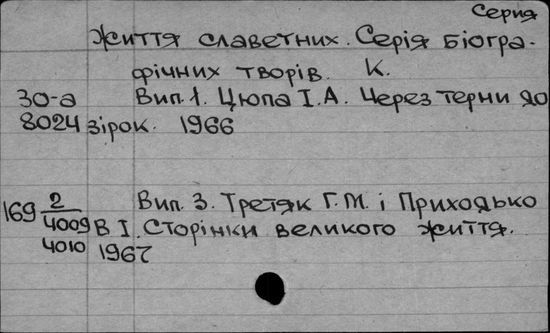 Серия
Життя славетних. Серія біогра-
фічних творів. К.
30-а Вип. 1. Цюпа І. А. Через терни до
8024 зірок. 1966
169 2/4009 Вип. 3. Третяк Г. М. і Приходько
4010 В І. Сторінки великого життя.
1967